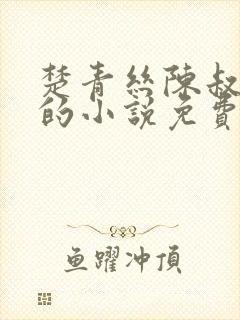 楚青丝陳叔
的小説免費
鱼躍冲頂